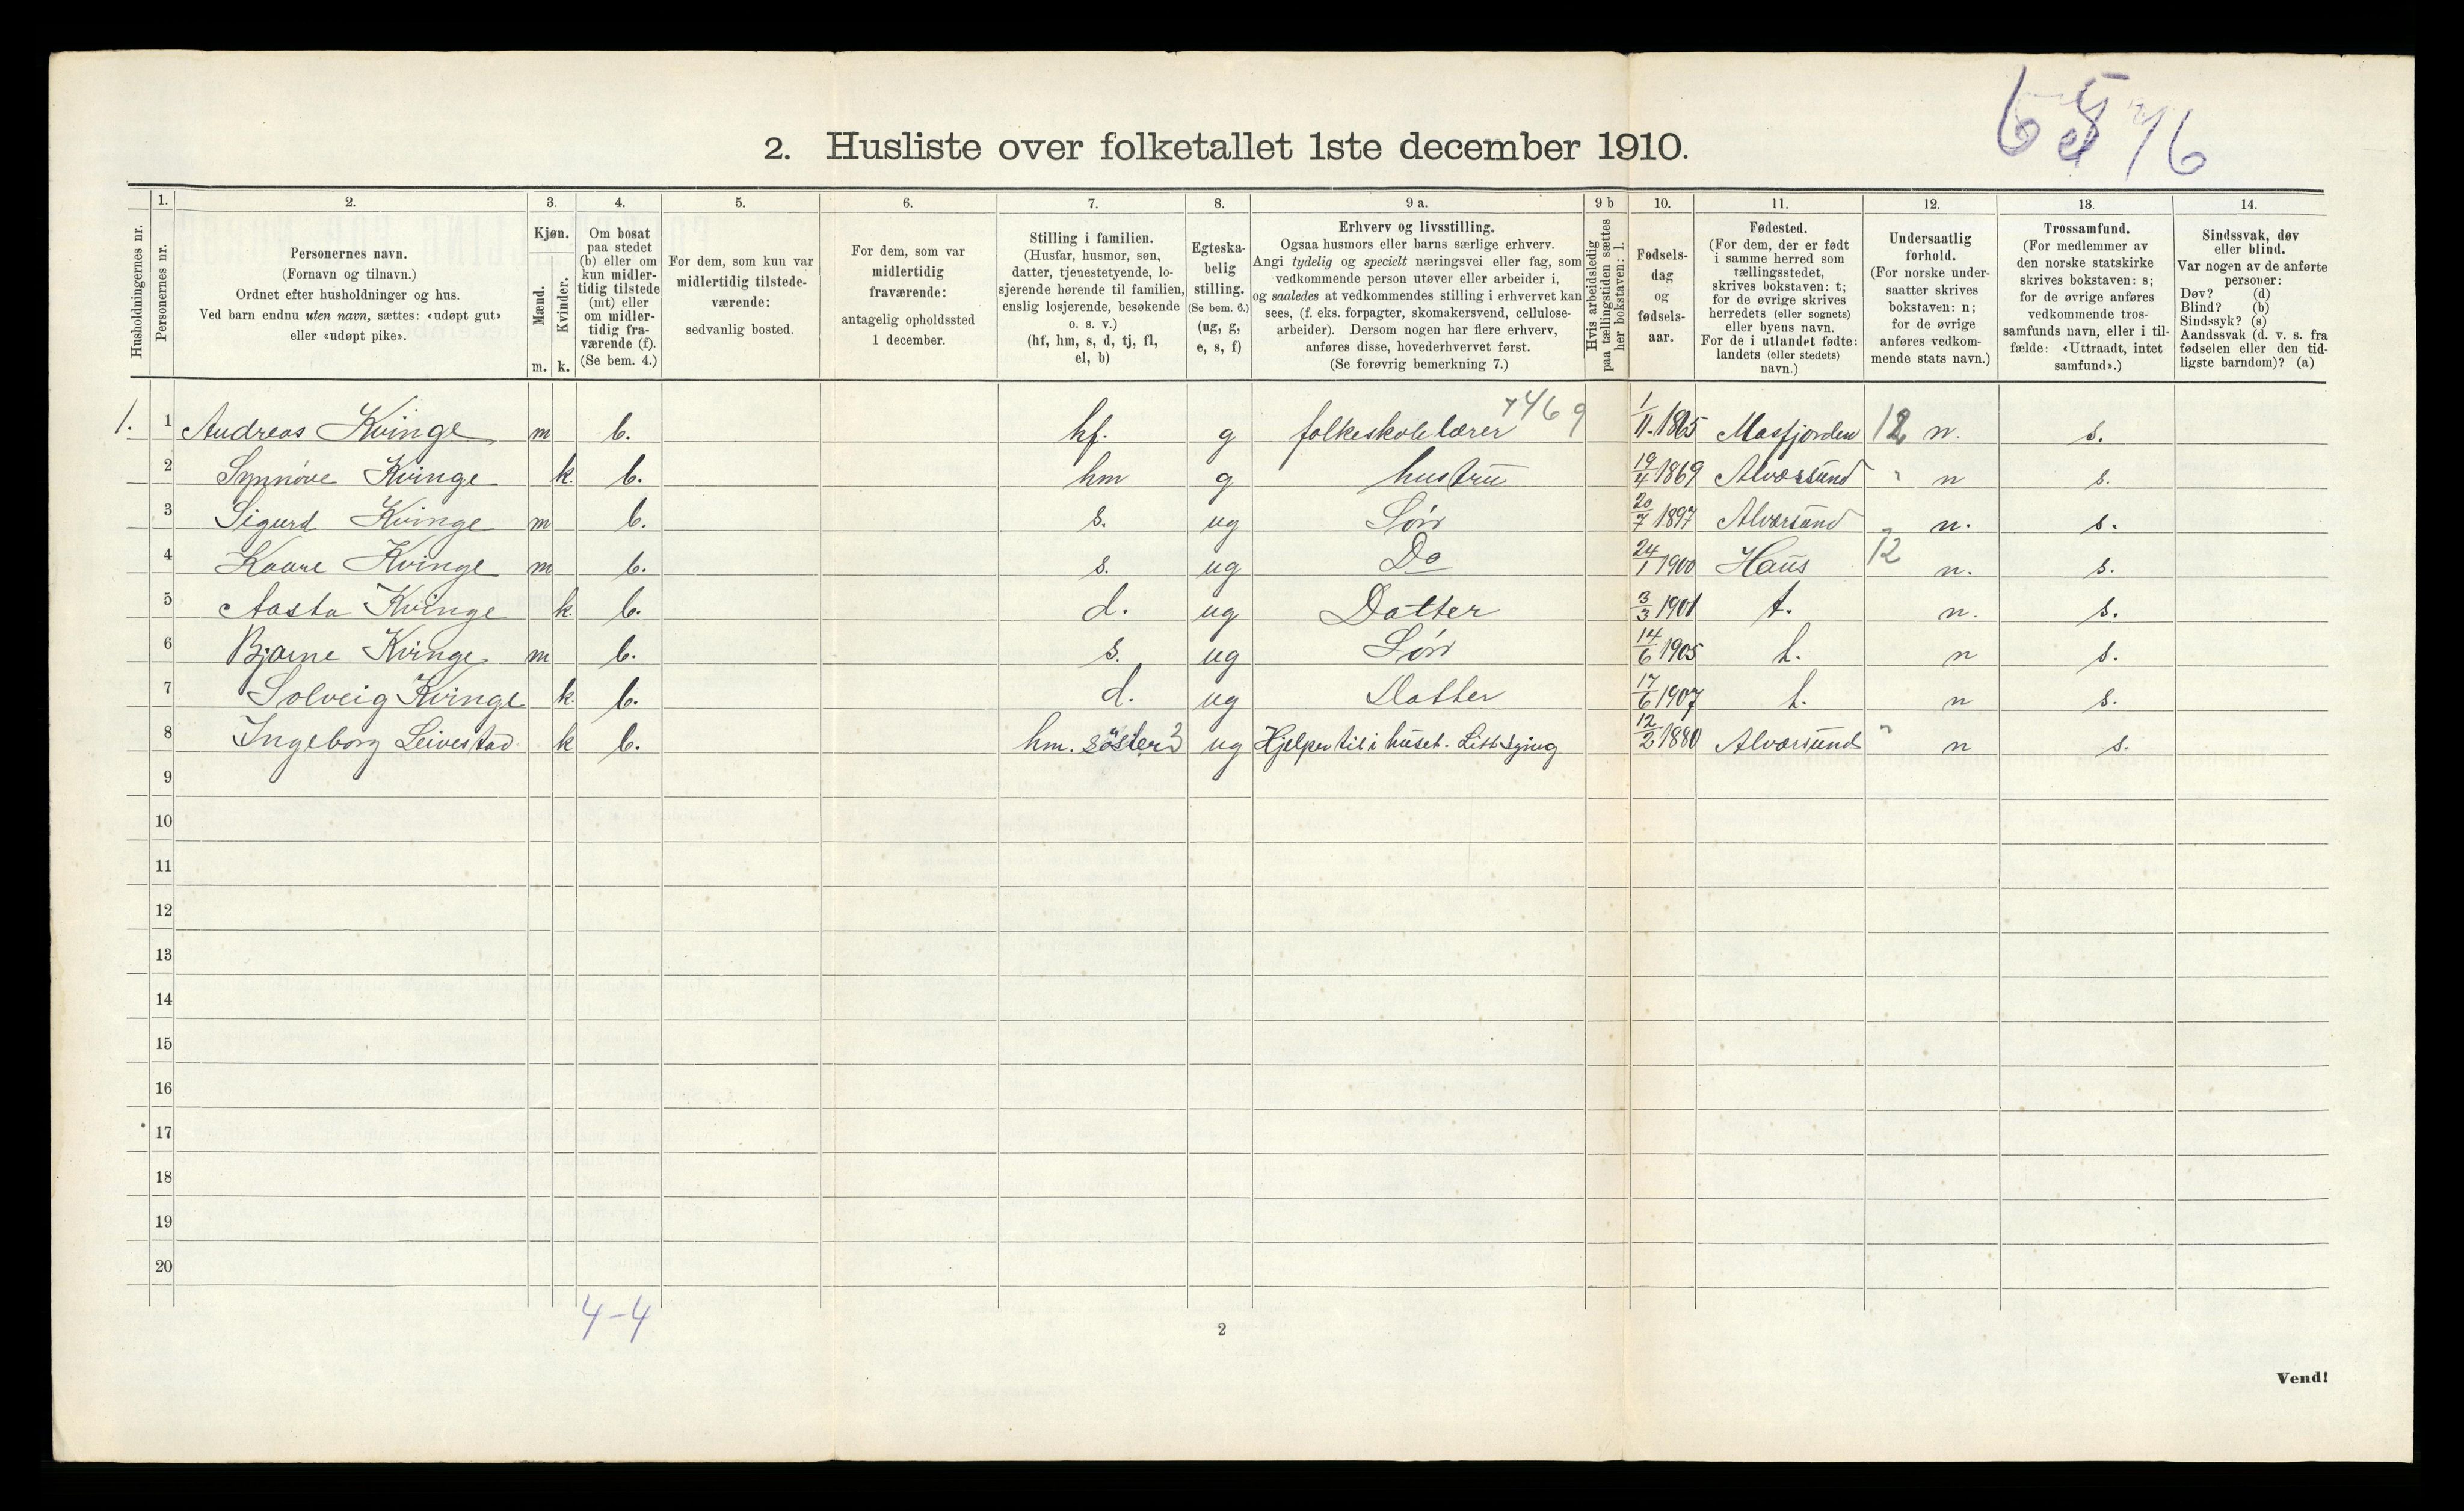 6576
2. Husliste over folketallet 1ste december 1910.
Husholdningernes nr.
1.
Personernes nr.
2.
Personernes navn.
(Fornavn og tilnavn.)
Ordnet efter husholdninger og hus.
Ved barn endnu uten navn, sættes: «udøpt gut»
eller «udøpt pike».
3.
Kjøn.
Mænd.
Kvinder.
m. k.
4.
Om bosat
paa stedet
(b) eller om
kun midler-
tidig tilstede
(mt) eller
om midler-
tidig fra-
værende (f).
(Se bem. 4.)
5.
For dem, som kun var
midlertidig tilstede-
værende:
sedvanlig bosted.
6.
For dem, som var
midlertidig
fraværende:
antagelig opholdssted
1 december.
7.
Stilling i familien.
(Husfar, husmor, søn,
datter, tjenestetyende, lo-
sjerende hørende til familien,
enslig losjerende, besøkende
o. s. v.)
(hf, hm, s, d, tj, fl,
el, b)
8.
Egteska-
belig
stilling.
(Se bem. 6.)
(ug, g,
e, s, f)
9 a.
Erhverv og livsstilling.
Ogsaa husmors eller barns særlige erhverv.
Angi tydelig og specielt næringsvei eller fag, som
vedkommende person utøver eller arbeider i,
og saaledes at vedkommendes stilling i erhvervet kan
sees, (f. eks. forpagter, skomakersvend, cellulose-
arbeider). Dersom nogen har flere erhverv,
anføres disse, hovederhvervet først.
(Se forøvrig bemerkning 7.)
9 b
Hvis arbeidsledig
paa tællingstiden sættes
her bokstaven: l.
10.
Fødsels-
dag
og
fødsels-
aar.
11.
Fødested.
(For dem, der er født
i samme herred som
tællingsstedet,
skrives bokstaven: t;
for de øvrige skrives
herredets (eller sognets)
eller byens navn.
For de i utlandet fødte:
landets (eller stedets)
navn.)
12.
Undersaatlig
forhold.
(For norske under-
saatter skrives
bokstaven: n;
for de øvrige
anføres vedkom-
mende stats navn.)
13.
Trossamfund.
(For medlemmer av
den norske statskirke
skrives bokstaven: s;
for de øvrige anføres
vedkommende tros-
samfunds navn, eller i til-
fælde: «Uttraadt, intet
samfund».)
14.
Sindssvak, døv
eller blind.
Var nogen av de anførte
personer:
Døv? (d)
Blind? (b)
Sindssyk? (s)
Aandssvak (d. v. s. fra
fødselen eller den tid-
ligste barndom)? (a)
1. 1 Andreas Kvinge m b. hf. g folkeskolelærer 7469 1/11 1865 Masfjorden 12 n. s.
2 Synnøve Kvinge k. b. hm g hustru 19/4 1869 Alversund " n s.
3 Sigurd Kvinge m b. s. ug Søn 20/7 1897 Alversund " n. s.
4 Kaare Kvinge m b. s. ug Do 24/1 1900 Haus 12 n. s.
5 Aasta Kvinge k. b. d. ug Datter 3/3 1901 t. n. s.
6 Bjarne Kvinge m b. s. ug Søn 14/6 1905 t. n s.
7 Solveig Kvinge k. b. d. ug Datter 17/6 1907 t. n s.
8 Ingeborg Leivestad k b. hm. søster 3 ug Hjelper til i huset. Litt sying 12/2 1880 Alversund " n s.
9
10
11
12
13
14
15
16
17
18
19
20
4-4
2
Vend!